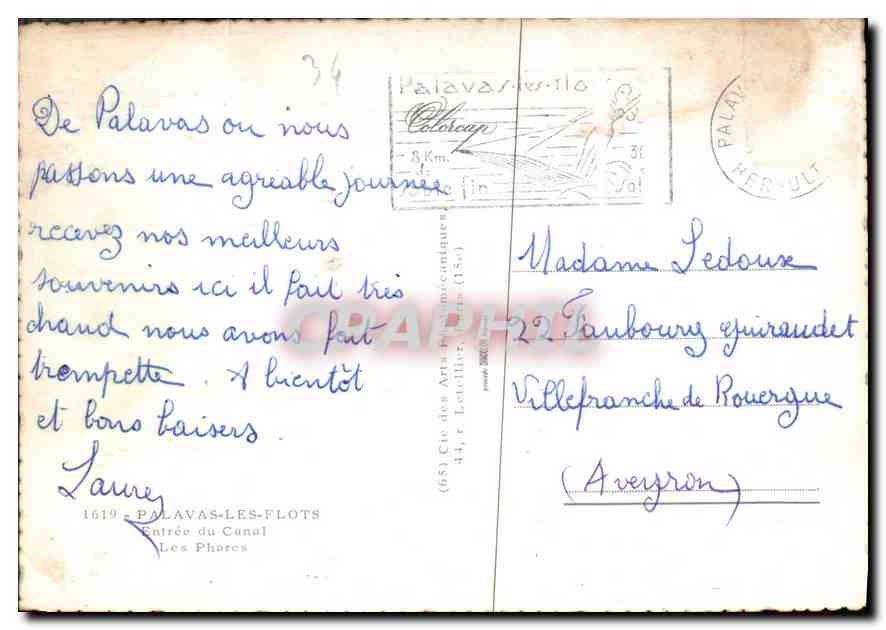 34
De Palavas ou nous
passons une agréable journée
recevez nos meilleurs
souvenirs ici il fait très
chaud nous avons fait
trempette. A bientôt
et bons baisers.
Laure
1619 - PALAVAS-LES-FLOTS
Entrée du Canal
Les Phares
Palavas-les-flo
8 Km.
de
fin
PALAV
HERAULT
(65) Cie des Arts Photomécaniques,
44, r. Letellier, Paris (15e)
CPAPHIL
Madame Ledoux
22 Faubourg Guiraudet
Villefranche de Rouergue
(Aveyron)